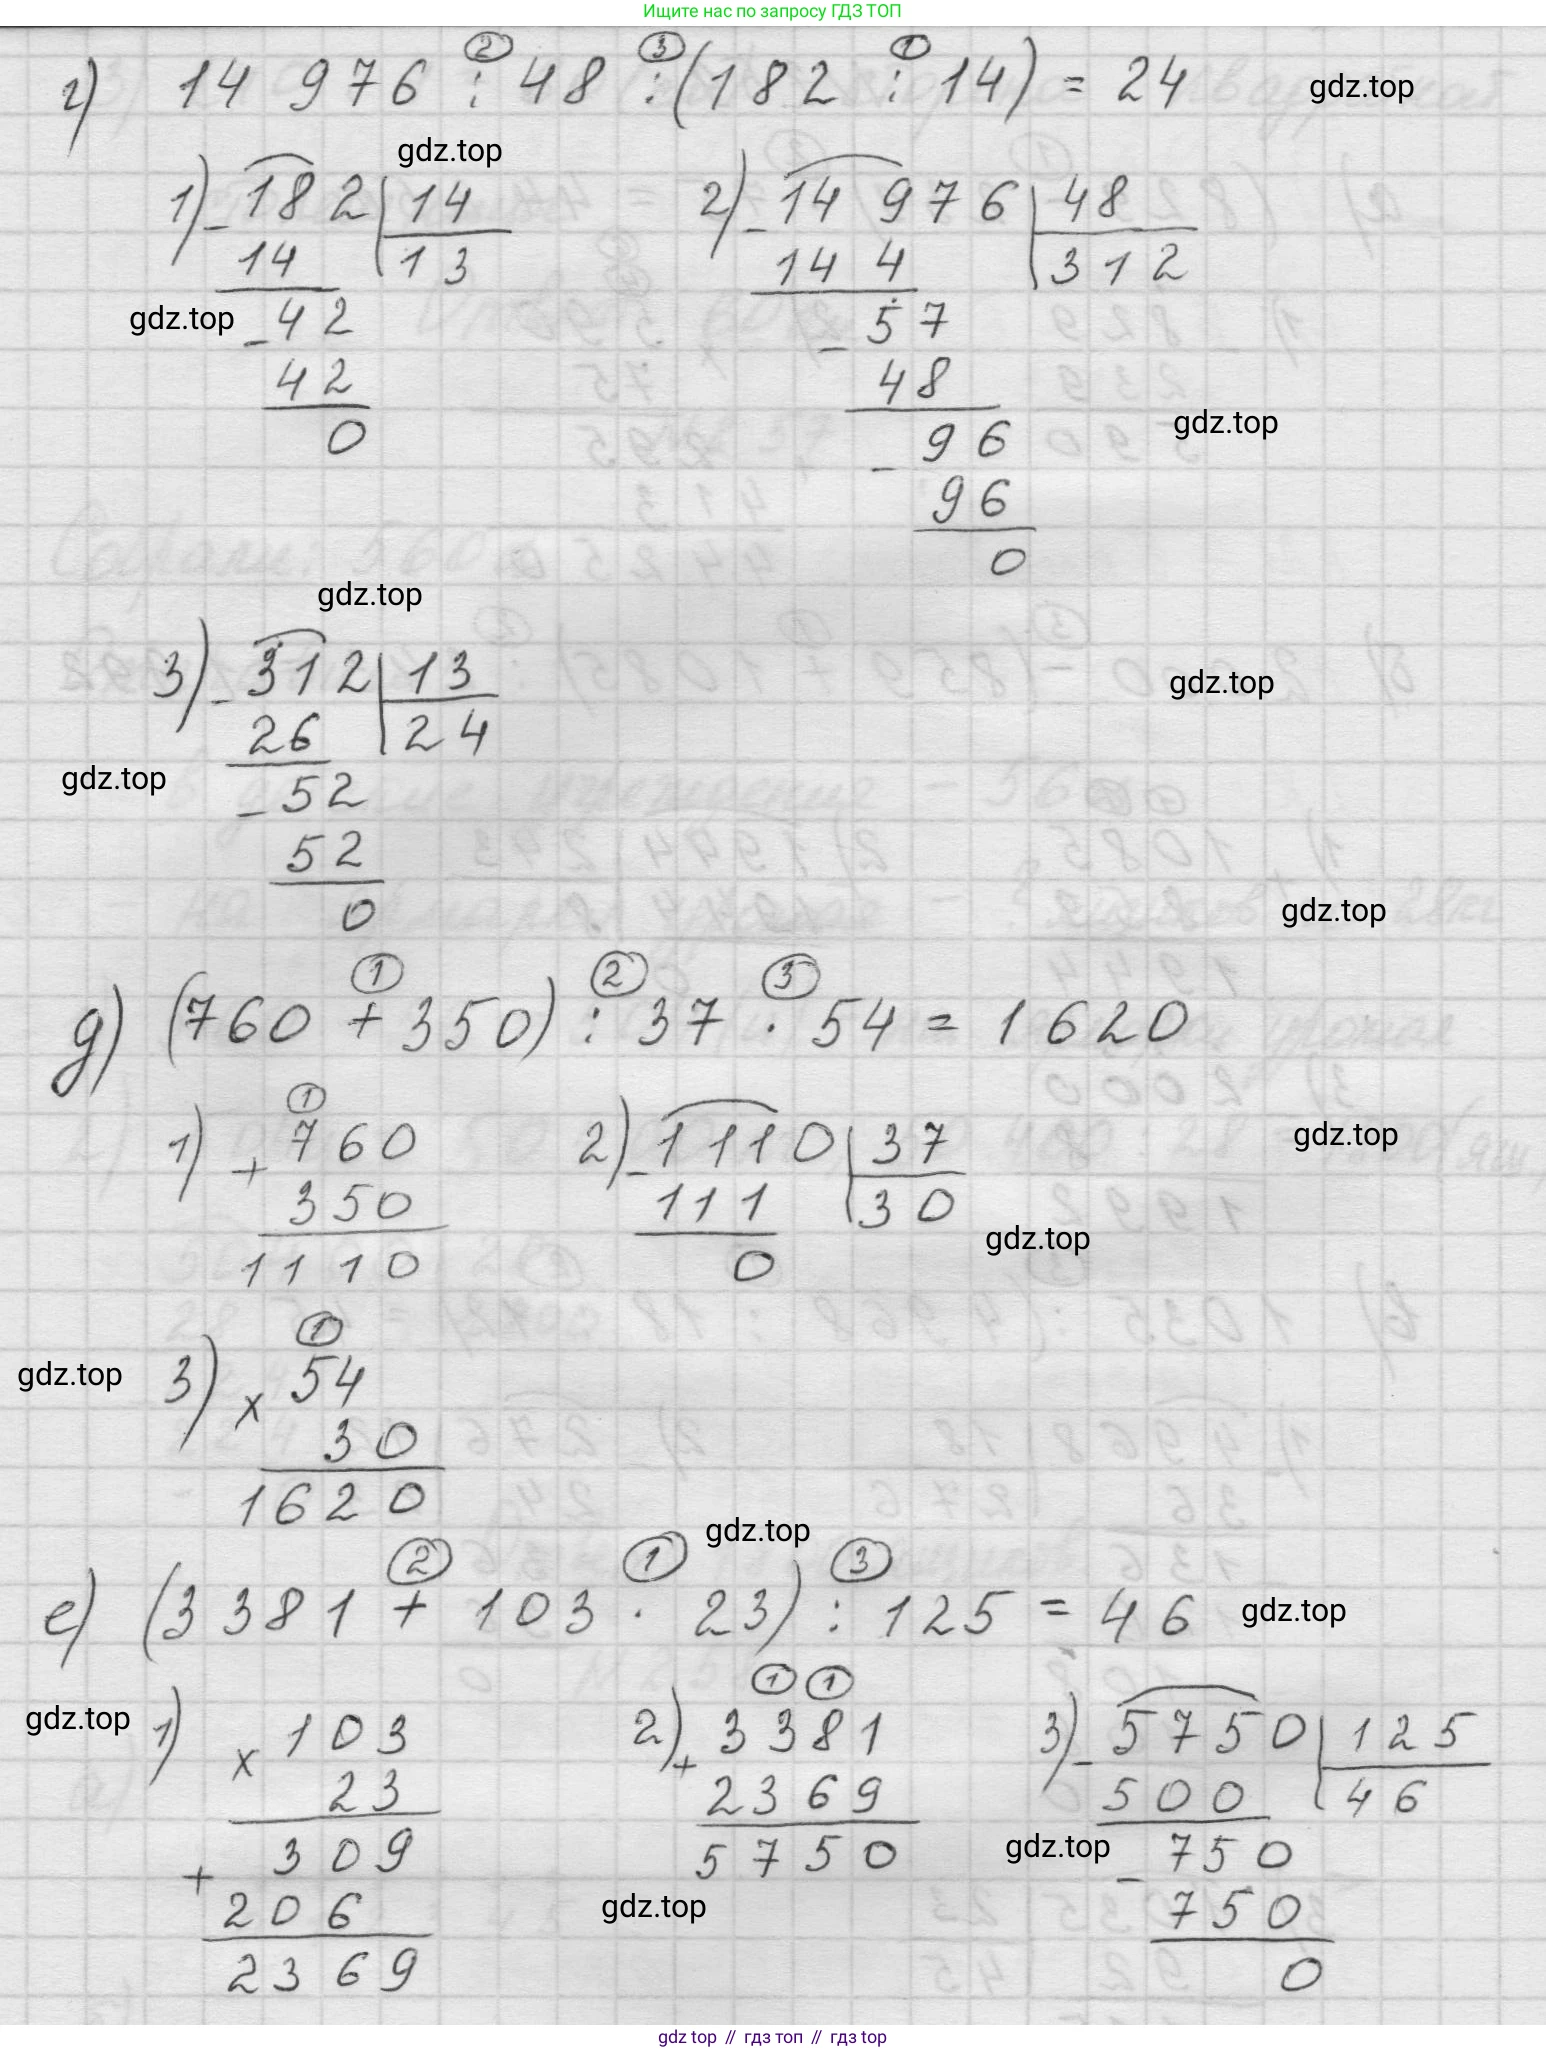 Ищите нас по запросу ГДЗ ТОП
г) 14 976 : 48 : (182 : 14) = 24
② ③ ①
gdz.top
gdz.top
1) - 182 | 14
14 | 13
gdz.top
- 42
42
0
2) - 14 976 | 48
14 4 | 312
- 57
48
- 96
96
0
gdz.top
gdz.top
3) - 312 | 13
26 | 24
- 52
52
0
gdz.top
gdz.top
gdz.top
① ② ③
д) (760 + 350) : 37 · 54 = 1620
①
1) + 760
350
1110
2) - 1110 | 37
111 | 30
0
gdz.top
gdz.top
①
3) x 54
30
1620
gdz.top
gdz.top
② ① ③
е) (3381 + 103 · 23) : 125 = 46
gdz.top
gdz.top
1) x 103
23
+ 309
206
2369
① ①
2) + 3381
2369
5750
gdz.top
3) - 5750 | 125
500 | 46
gdz.top
- 750
750
0
gdz top // гдз топ // gdz top